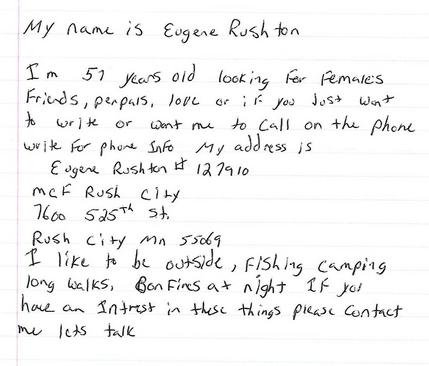 My name is Eugene Rushton
I'm 57 years old looking for females
Friends, penpals, love or if you Just want
to write or want me to Call on the phone
write for phone Info My address is
Eugene Rushton # 127910
MCF Rush City
7600 525th St.
Rush City Mn 55069
I like to be outside, Fishing Camping
long walks, Bonfires at night If you
have an Intrest in these things please Contact
me lets talk